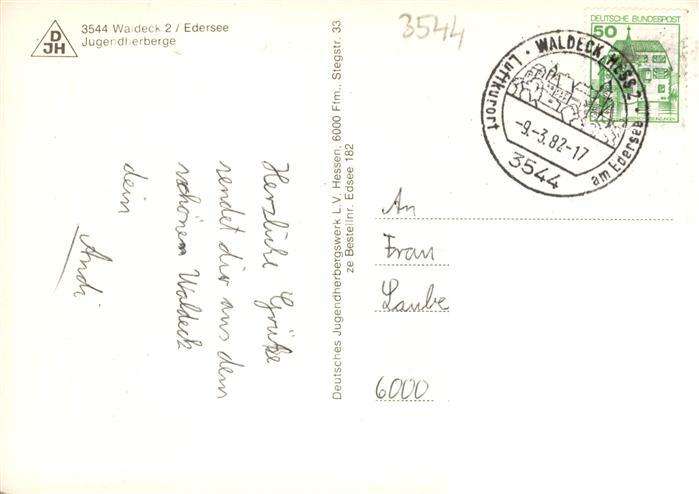 D
JH
3544 Waldeck 2 / Edersee
Jugendherberge
3544
DEUTSCHE BUNDESPOST
50
WALDECK, HESS 2
am Edersee
Luftkurort
-9.-3.82-17
3544
Herzliche Grüße
sendet dir aus dem
schönen Waldeck
dein
Andi
Deutsches Jugendherbergswerk L.V. Hessen, 6000 Ffm., Stegstr. 33
ze Bestellnr. Edsee 182
An
Frau
Laube
6000